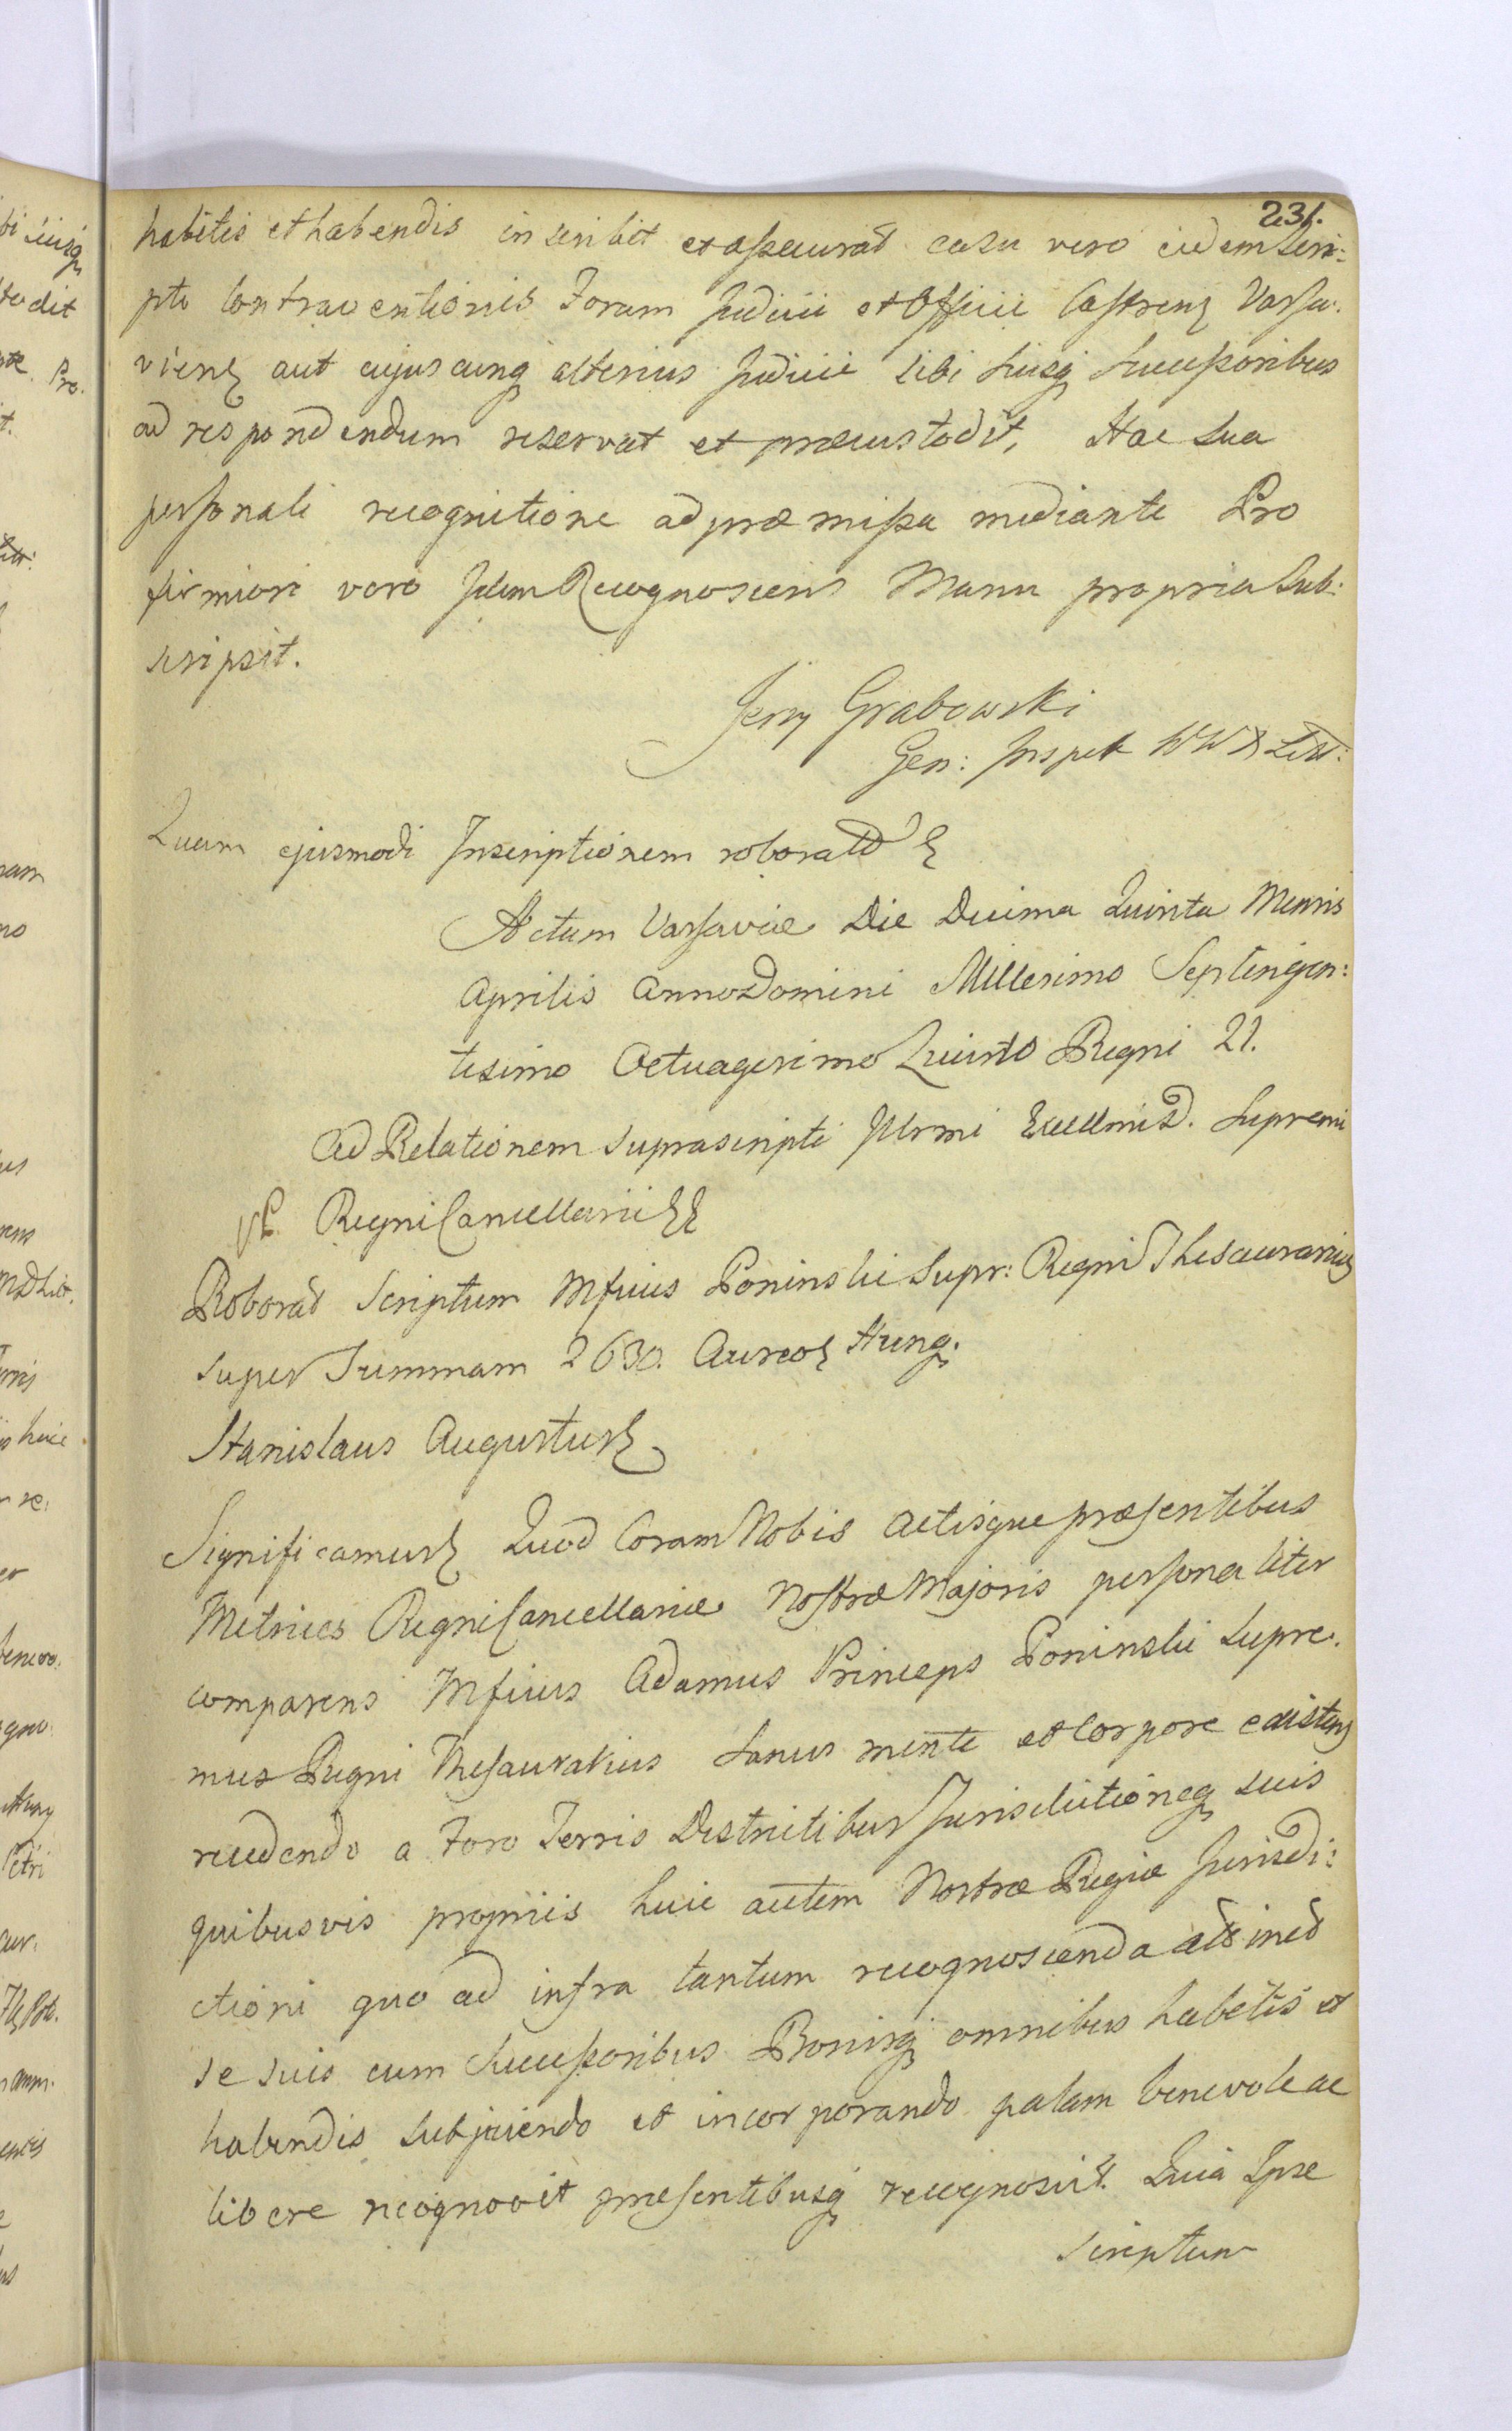 231.
habitis et habendis inscribit et assecurat casu vero eidem Scri:
pto Contraventionis Forum Judicii et Officii Castrens Varsa:
viens aut cujuscunq alterius Judicii sibi suisq Successoribus
ad respondendum reservat et præcustodit, Hac sua
personali recognitione ad præmissa mediante Pro
firmiori vero Idem Recognoscens Manu propria Sub:
scripsit.
Jerzy Grabowski
Gen: Inspek WWX Litt:
Quam ejusmodi Inscriptionem roborand
Actum Varsaviæ Die Decima Quinta Mensis
Aprilis Anno Domini Millesimo Septingen:
tesimo Octuagesimo Quinto Regni 21.
Ad Relationem suprascripti Illrmi Excellmi D. Supremi
Regni Cancellarii
Roborat Scriptum Mficus Poninski Supr: Regni Thesaurarius
super Summam 2630. Aureos Hung.
Stanislaus Augustus
Significamus Quod Coram Nobis Actisque præsentibus
Metrices Regni Cancellariæ Nostræ Majoris personaliter
comparens Mficus Adamus Princeps Poninski Supre:
mus Regni Thesaurarius sanus mente et Corpore existens
recedendo a Foro Terris Districtibus Jurisdictioneq suis
quibusvis propriis huic autem Nostræ Regiæ Jurisdi:
ctioni quo ad infra tantum recognoscenda attinet
se suis cum Successoribus Bonisq omnibus habitis et
habendis subjiciendo et incorporando palam benevole ac
libere recognovit præsentibusq recognoscit. Quia Ipse
Scriptum